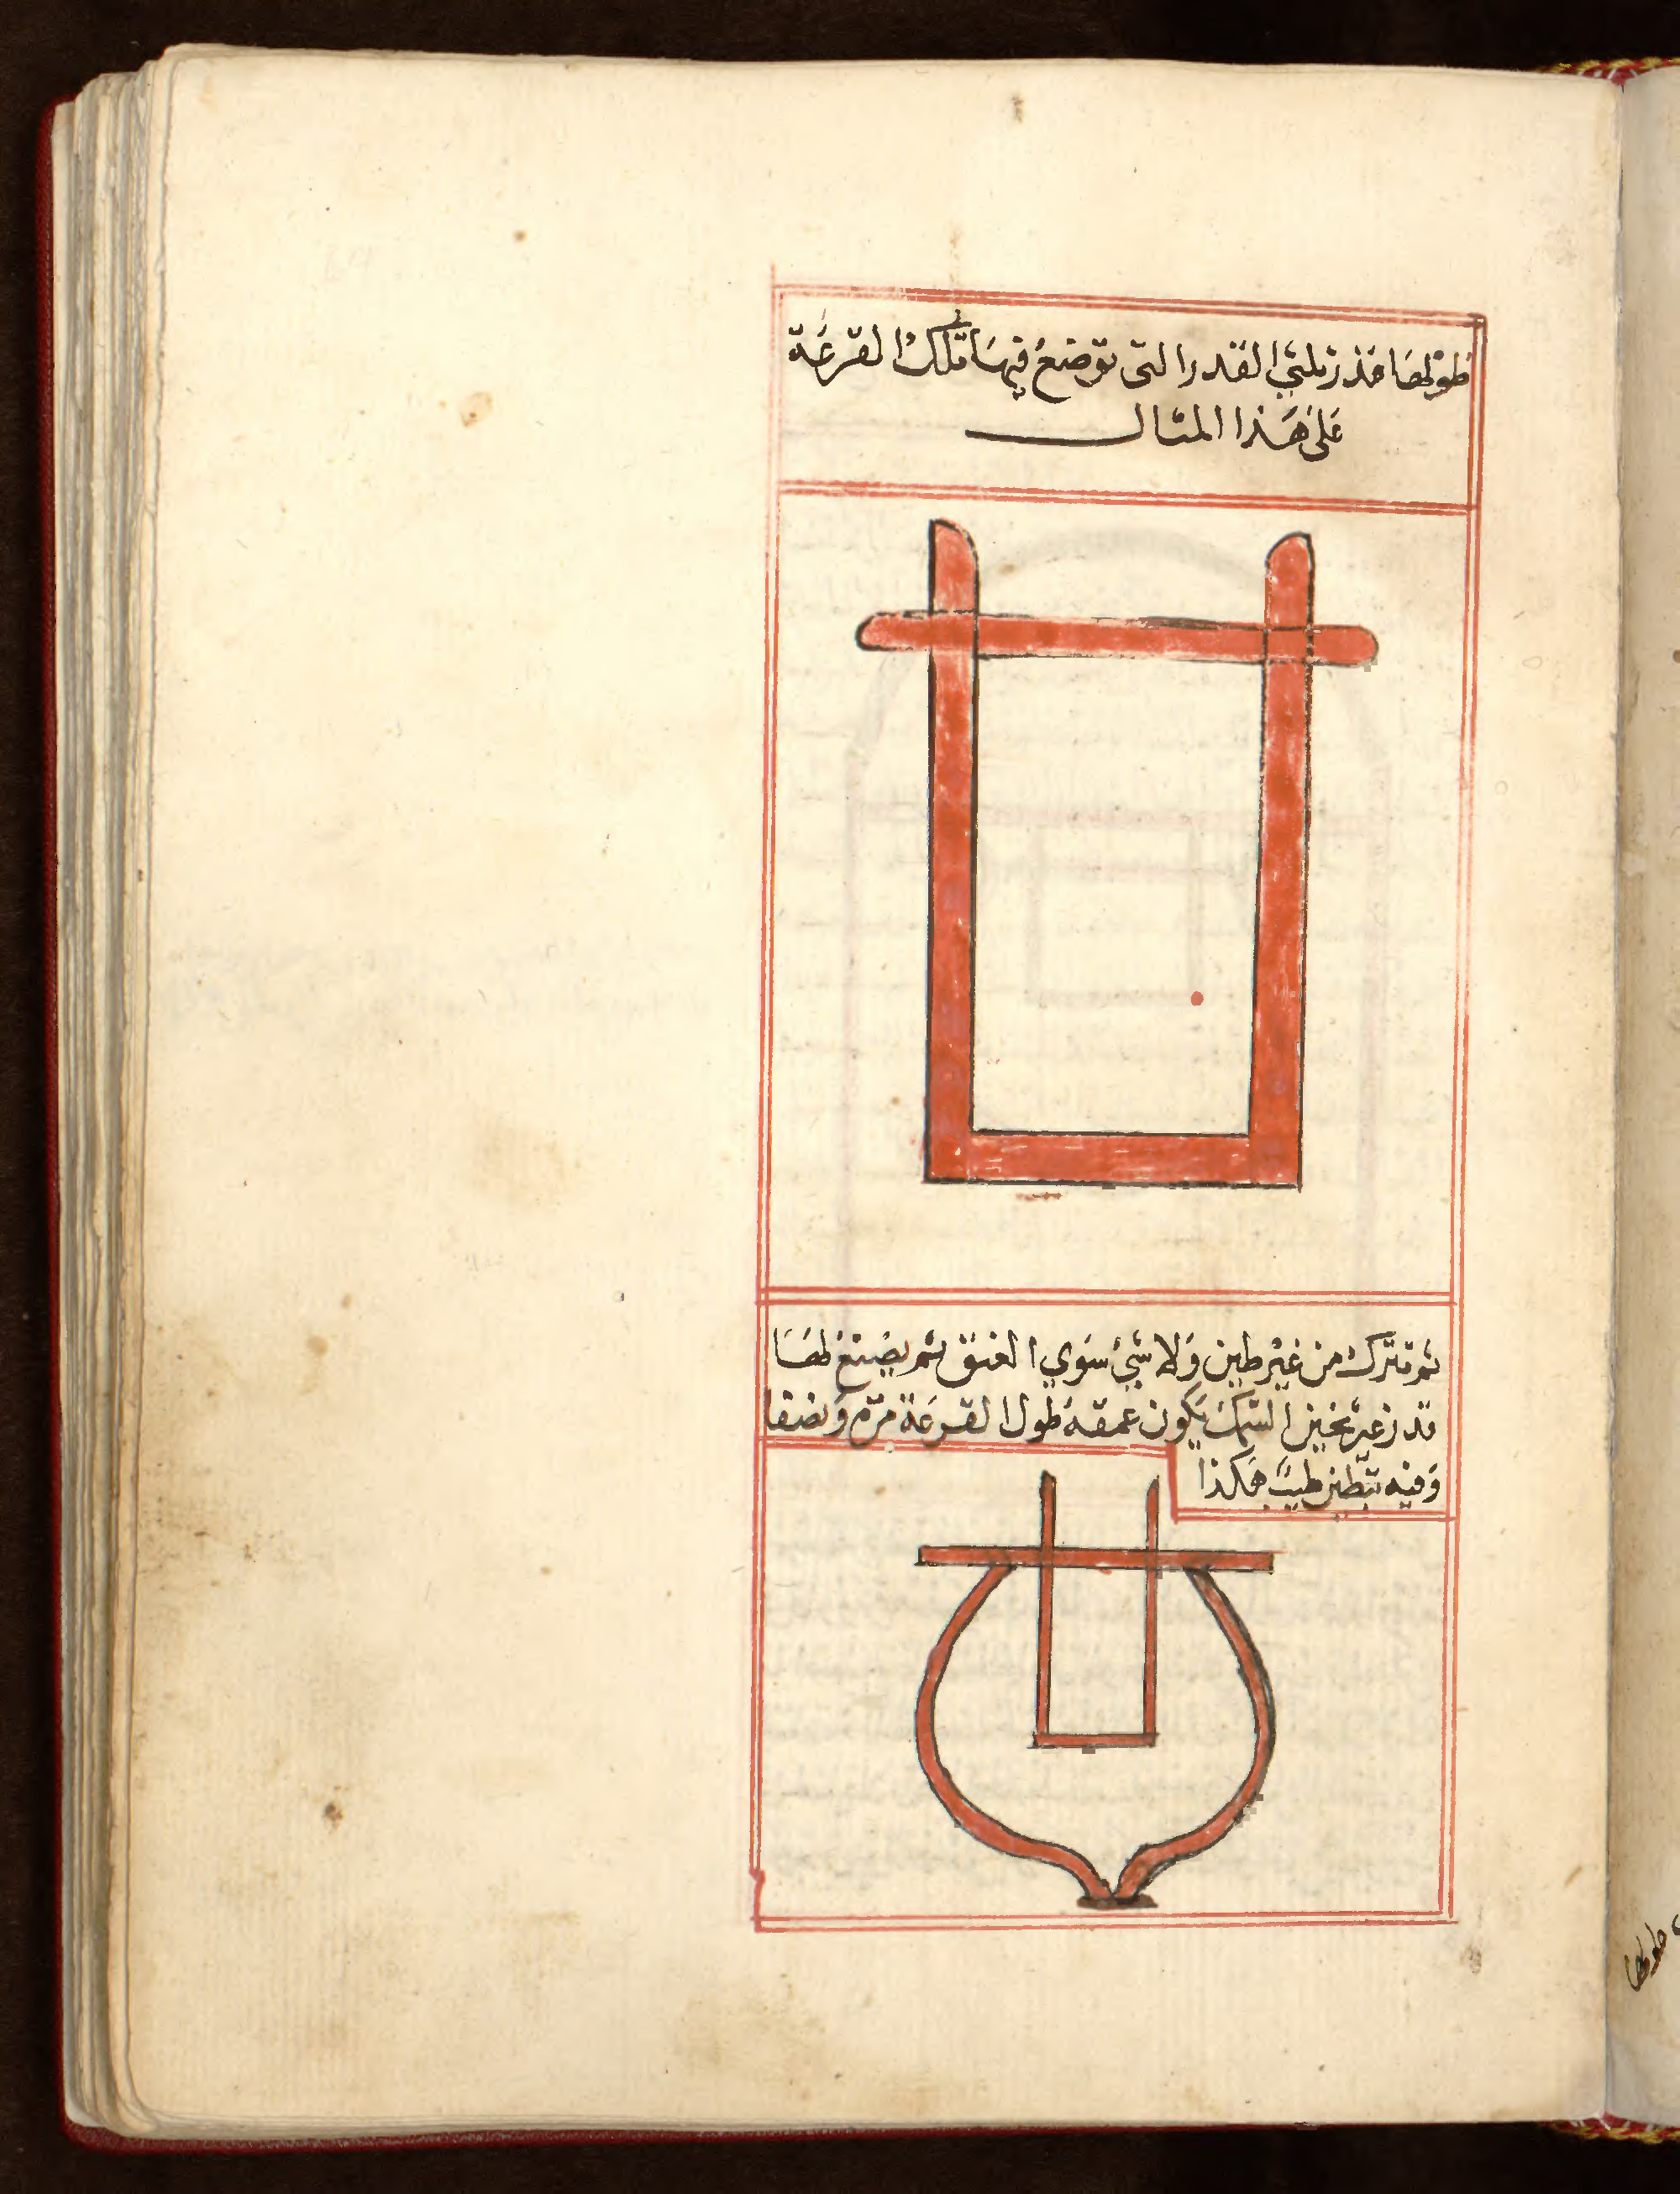 طولها قدر ثلثي القدر التي توضع فيها تلك القرعة
على هذا المثال
ثم تترك من غير طين ولا شئ سوي العنق ثم يصنع لها
قدر غير ثخين السمك يكون عمقه طول القرعة مرة ونصفا
وفيه تبطين طيب هكذا
طولها